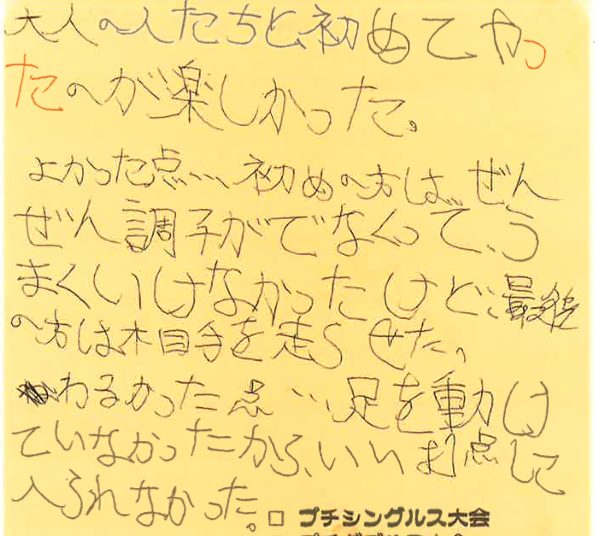 大人の人たちと、初めてやっ
たのが楽しかった。
よかった点…、初めの方は、ぜん
ぜん調子がでなくって、う
まくいけなかったけど、最後
の方は相手を走らせた。
わるかった点…、足を動け
ていなかったから、いい打点に
入られなかった。
□ プチシングルス大会